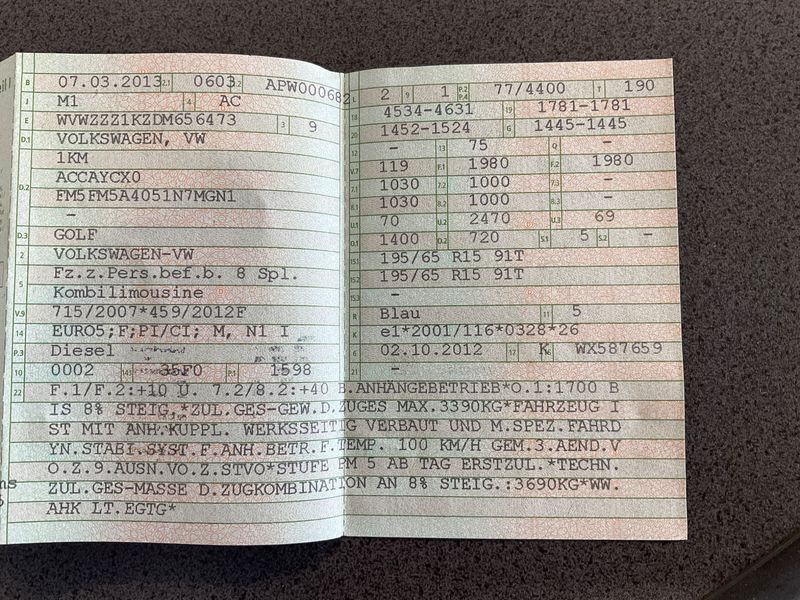 B 07.03.2013 2.1 0603 2.2 APW000682
J M1 4 AC
E WVWZZZ1KZDM656473 3 9
D.1 VOLKSWAGEN, VW
1KM
D.2 ACCAYCX0
FM5FM5A4051N7MGN1
–
D.3 GOLF
2 VOLKSWAGEN-VW
5 Fz.z.Pers.bef.b. 8 Spl.
Kombilimousine
V.9 715/2007*459/2012F
14 EURO5;F;PI/CI; M, N1 I
P.3 Diesel
10 0002 14.1 35F0 P.1 1598
L 2 9 1 P.2 P.4 77/4400 T 190
18 4534-4631 19 1781-1781
20 1452-1524 G 1445-1445
12 – 13 75 Q –
V.7 119 F.1 1980 F.2 1980
7.1 1030 7.2 1000 7.3 –
8.1 1030 8.2 1000 8.3 –
U.1 70 U.2 2470 U.3 69
O.1 1400 O.2 720 S.1 5 S.2 –
15.1 195/65 R15 91T
15.2 195/65 R15 91T
15.3 –
R Blau 11 5
K e1*2001/116*0328*26
6 02.10.2012 17 K 16 WX587659
21 –
22 F.1/F.2:+10 Ü. 7.2/8.2:+40 B.ANHÄNGEBETRIEB*O.1:1700 B
IS 8% STEIG.*ZUL.GES-GEW.D.ZUGES MAX.3390KG*FAHRZEUG I
ST MIT ANH.KUPPL. WERKSSEITIG VERBAUT UND M.SPEZ.FAHRD
YN.STABI.SYST.F.ANH.BETR.F.TEMP. 100 KM/H GEM.3.AEND.V
O.Z.9.AUSN.VO.Z.STVO*STUFE PM 5 AB TAG ERSTZUL.*TECHN.
ZUL.GES-MASSE D.ZUGKOMBINATION AN 8% STEIG.:3690KG*WW.
AHK LT.EGTG*